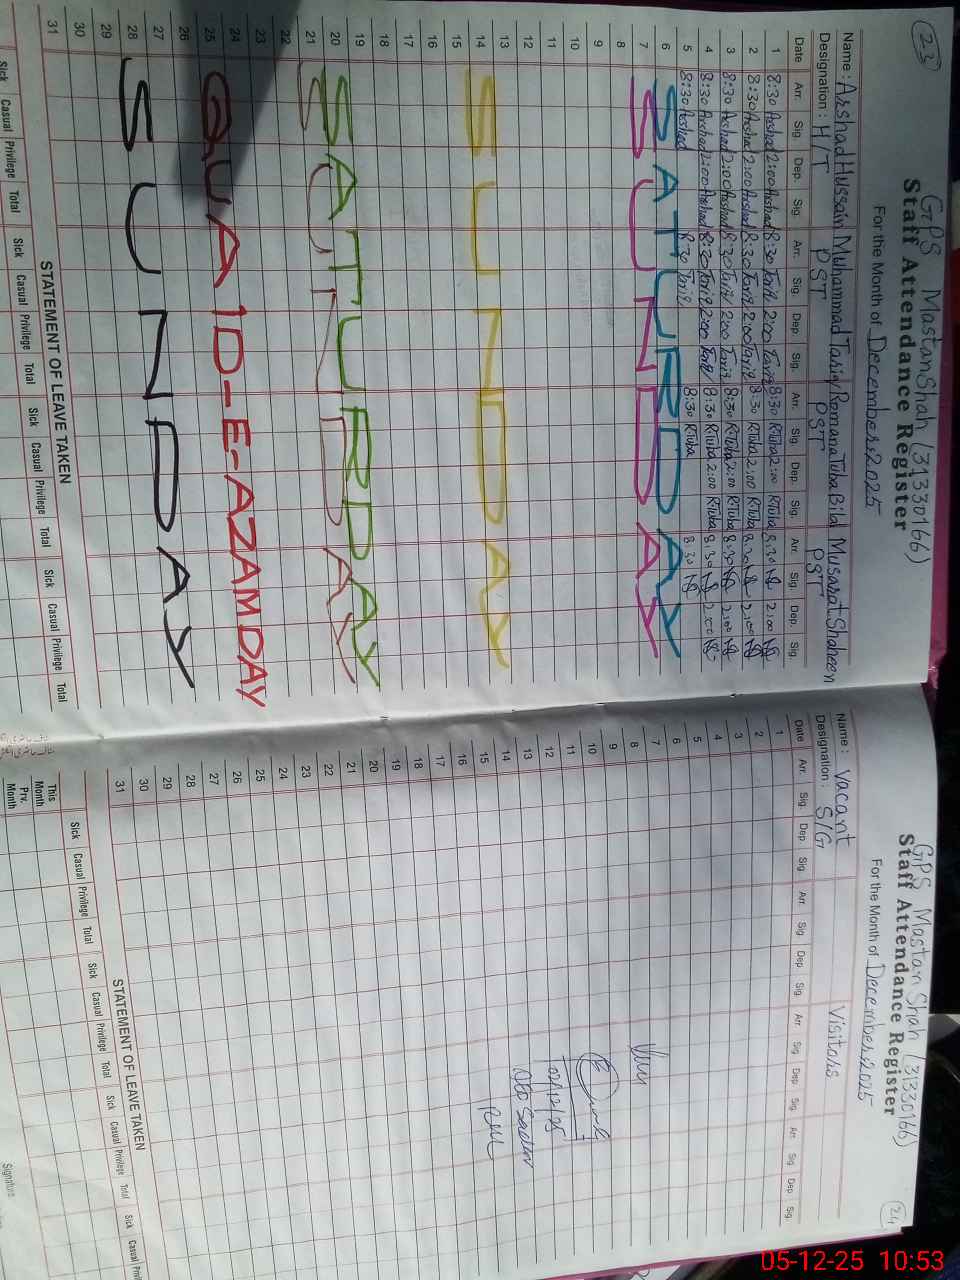 23
GPS Mastan Shah (31330166)
Staff Attendance Register
For the Month of December 2025
Name : Arshad Hussain Muhammad Tariq Romana Tuba Bilal Musarat Shaheen
Designation : H/T PST PST PST
Date Arr. Sig. Dep. Sig. Arr. Sig. Dep Sig. Arr. Sig. Dep. Sig. Arr. Sig. Dep. Sig.
1 8:30 Arshad 2:00 Arshad 8:30 Tariq 2:00 Tariq 8:30 RTuba 2:00 RTuba 8:30 2:00
2 8:30 Arshad 2:00 Arshad 8:30 Tariq 2:00 Tariq 8:30 RTuba 2:00 RTuba 8:30 2:00
3 8:30 Arshad 2:00 Arshad 8:30 Tariq 2:00 Tariq 8:30 RTuba 2:00 RTuba 8:30 2:00
4 8:30 Arshad 2:00 Arshad 8:30 Tariq 2:00 Tariq 8:30 RTuba 2:00 RTuba 8:30 2:00
5 8:30 Arshad 8:30 Tariq 8:30 RTuba 8:30
6 SATURDAY
7 SUNDAY
8
9
10
11
12
13
14 SUNDAY
15
16
17
18
19
20 SATURDAY
21 SUNDAY
22
23
24
25 QUAID-E-AZAM DAY
26
27
28 SUNDAY
29
30
31
STATEMENT OF LEAVE TAKEN
Sick Casual Privilege Total Sick Casual Privilege Total Sick Casual Privilege Total Sick Casual Privilege Total
24
GPS Mastan Shah (31330166)
Staff Attendance Register
For the Month of December 2025
Name : Vacant Visitors
Designation : S/G
Date Arr. Sig. Dep. Sig. Arr. Sig. Dep Sig. Arr. Sig. Dep Sig. Arr. Sig. Dep Sig.
1
2
3
4
5
6
7
8
9
10
11
12 02/12/25
13
14
15
16
17
18
19
20
21
22
23
24
25
26
27
28
29
30
31
STATEMENT OF LEAVE TAKEN
Sick Casual Privilege Total Sick Casual Privilege Total Sick Casual Privilege Total Sick Casual
This Month
Prv. Month
Signature
05-12-25 10:53